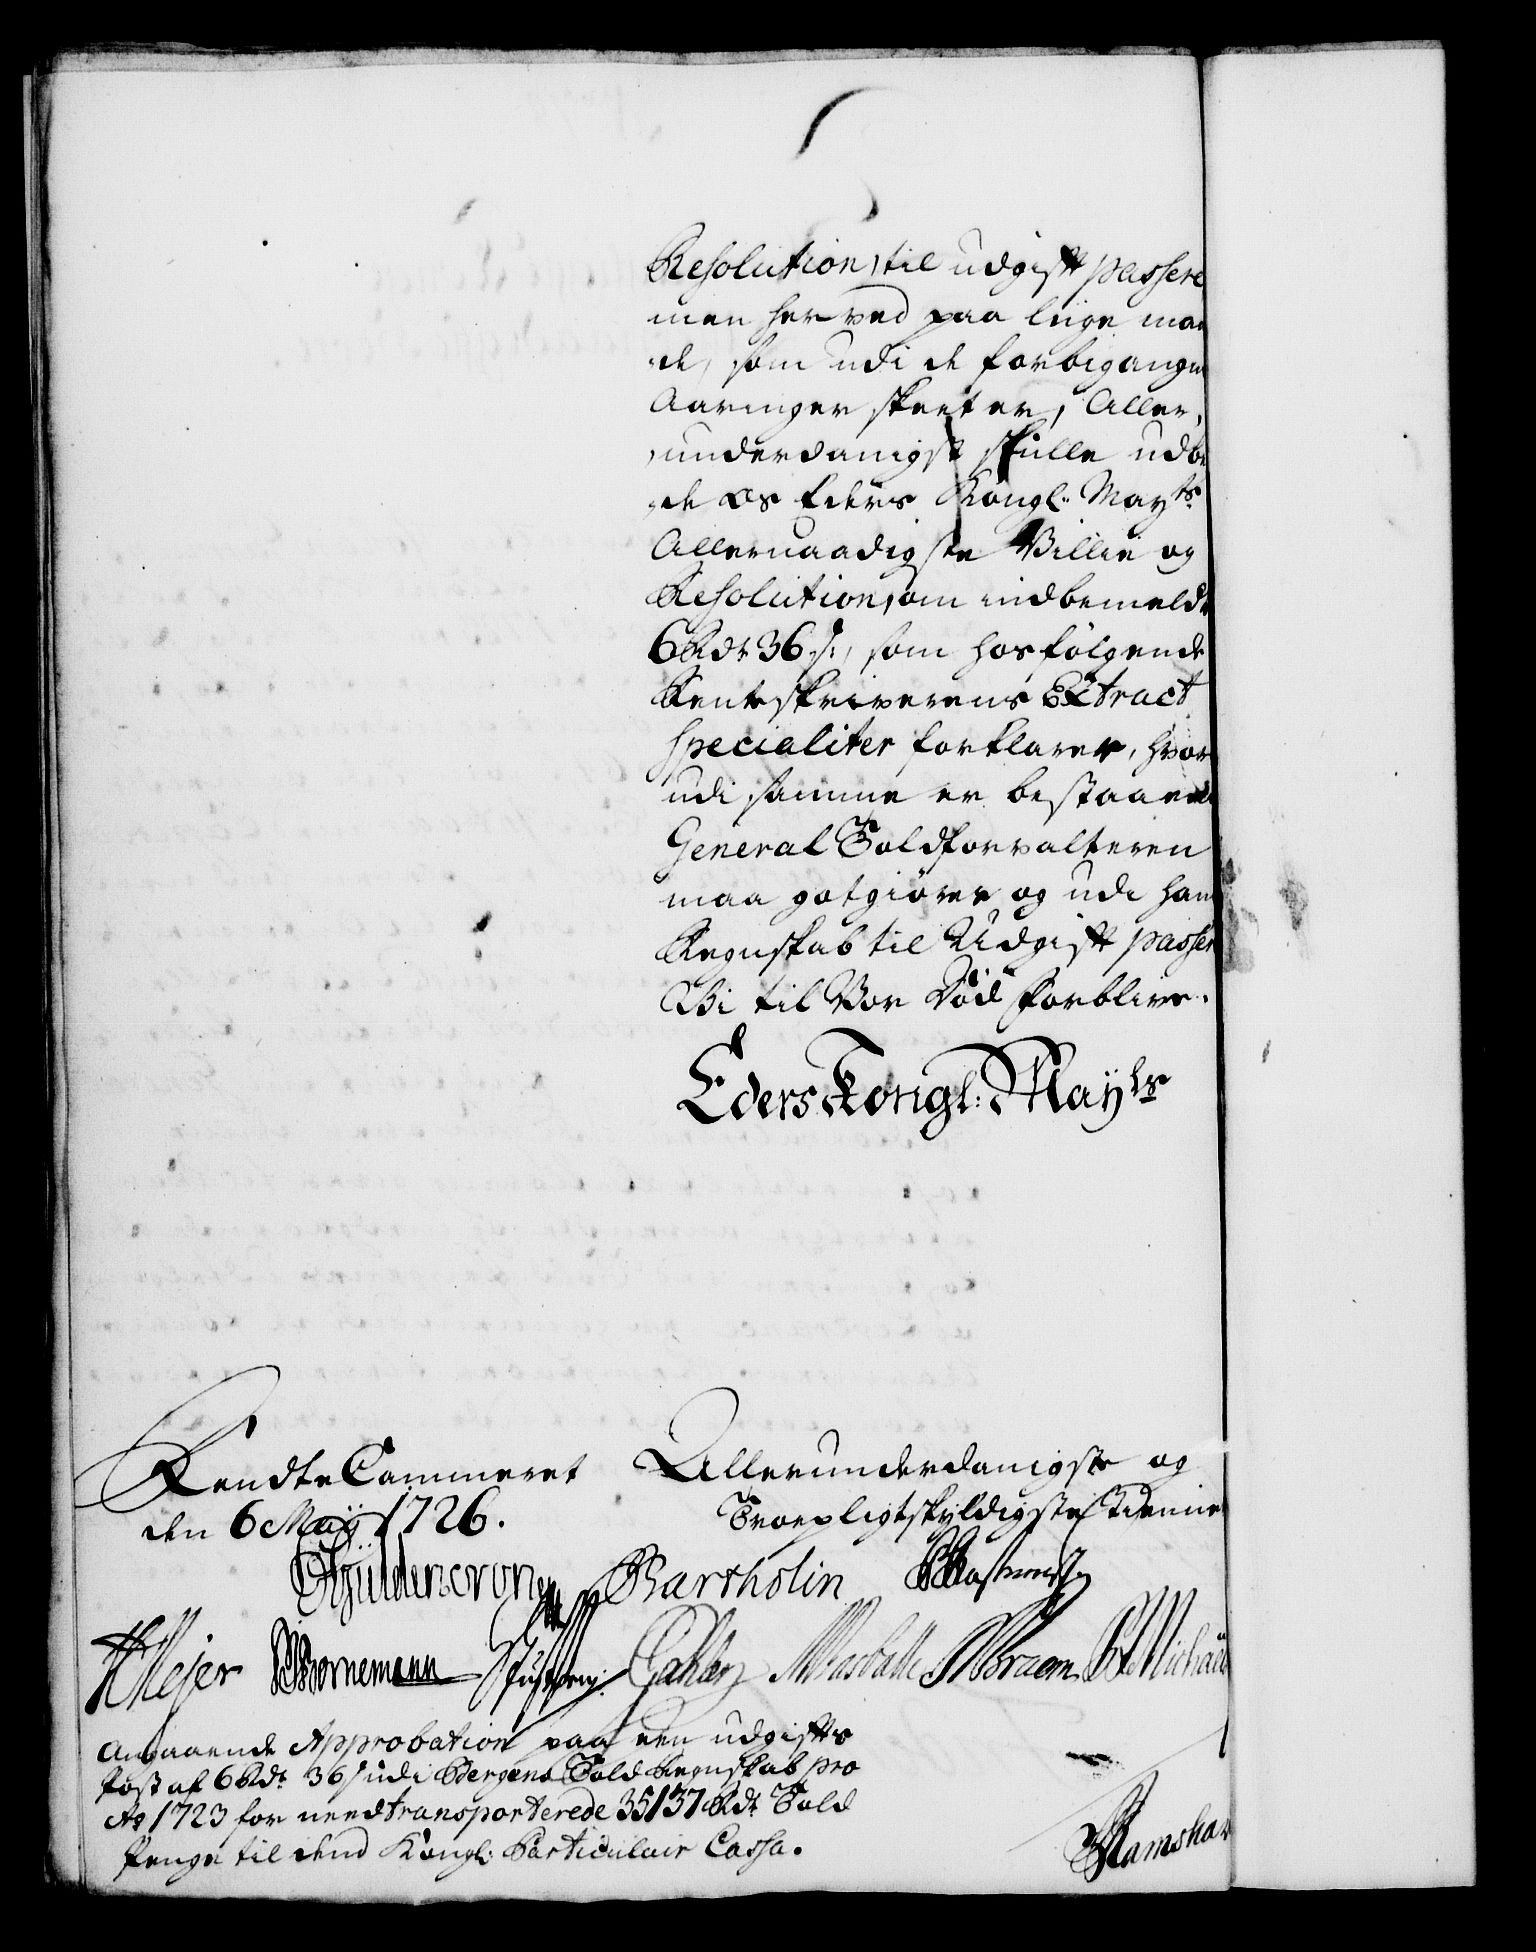 Resolution, til udgift passere
men herved paa liige maa
de, som udi de forbigangne
Aaringer skeet er, Aller-
underdanigst skulle udbe
de os Eders Kongl: Mayts
Allernaadigste Villie og
Resolution, om indbemeldte
6 Rdr 36 s:, som hosfølgende
Renteskriverens Extract
specialiter forklarer, hvor
udi samme er bestaaende
General Toldforvalteren
maa gotgiøres og udi hans
Regnskab til Udgift passere
Vi til Vor Död forblive.
Eders Kongl: Mayts
RendteCammeret
den 6 Maÿ 1726.
Allerunderdanigste og
Troepligtskyldigste Tienner
Güldencrone Bartholin
HMejer Bornemann Braem
Angaaende Approbation paa een udgifts
Post af 6 Rdr 36 s udi Bergens Told Regnskab pro
Ao 1723 for nedtransporterede 35137 Rdr Told
Penge til dend Kongl: Particulair Cassa.
Ramshar